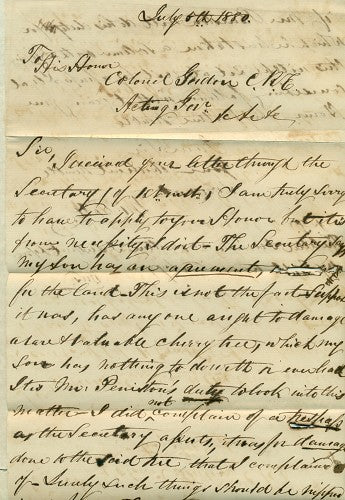 July 5th 1880.
To
His Honor
Colonel Gordon C.M.G
Acting Govr
&c &c &c
Sir,
I received your letter through the
Secretary of ; I am truly sorry
to have to apply to your Honor but it is
from necessity I do it - The Secretary says
my son has an agreement
for the land - This is not the fact suppose
it was, has any one a right to damage
a rare & valuable cherry tree, which my
Son has nothing to do with or ever had
It is Mr. duty to look into this
matter - I did not complain of a
as the Secretary asserts, it was for damage
done to the said tree that I complaine
of - Surely such things should be